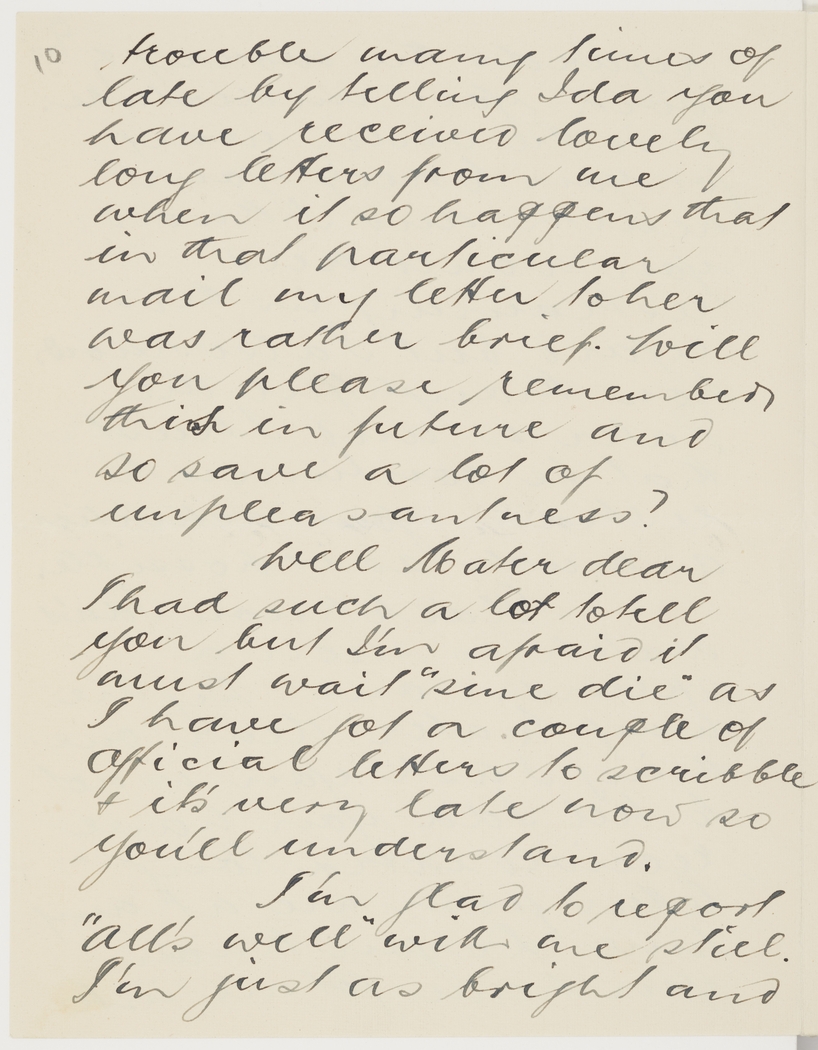 10
trouble many times of
late by telling Ida you
have received lovely
long letters from me
when it so happens that
in that particular
mail my letter to her
was rather brief. Will
you please remember
this in future and
so save a lot of
unpleasantness?
Well Mater dear
I had such a lot to tell
you but I'm afraid it
must wait "sine die" as
I have got a couple of
official letters to scribble
& it's very late now so
you'll understand.
I'm glad to report
"All's well" with me still.
I'm just as bright and